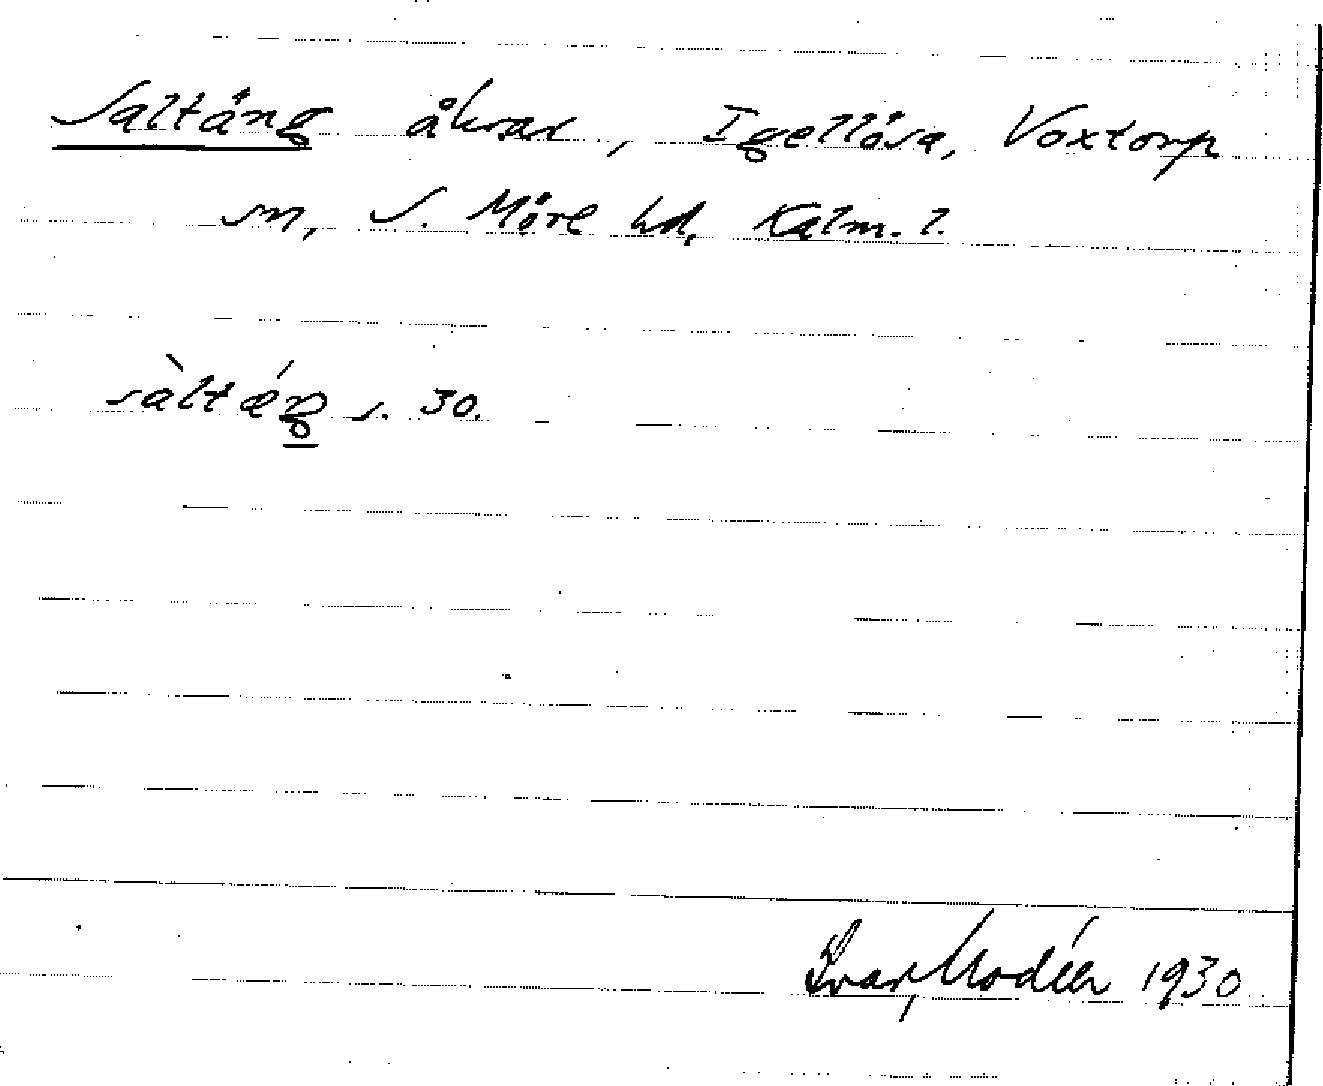 Saltäng åkrar, Igellösa, Voxtorp
sn, S. Möre hd, Kalm. l.
sàltǽŋ s. 30.
Ivar Modéer 1930